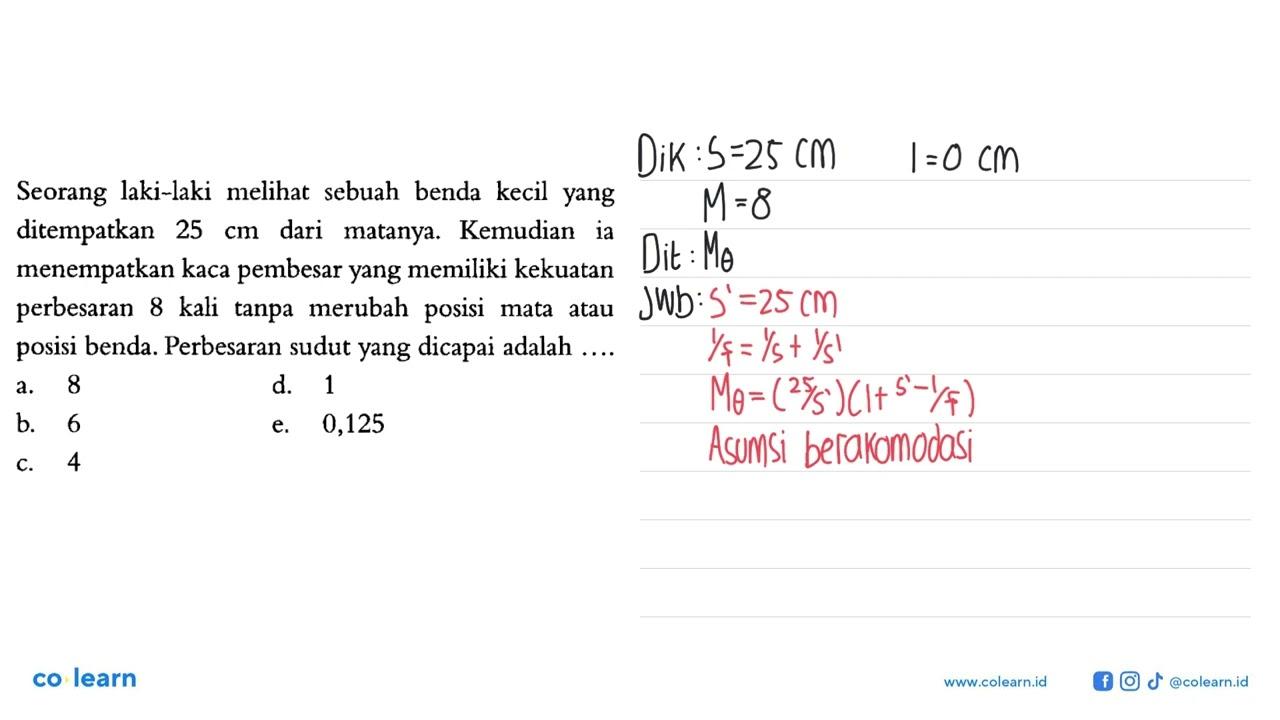 Seorang laki-laki melihat sebuah benda kecil yang
ditempatkan 25 cm dari matanya. Kemudian ia
menempatkan kaca pembesar yang memiliki kekuatan
perbesaran 8 kali tanpa merubah posisi mata atau
posisi benda. Perbesaran sudut yang dicapai adalah ....
a. 8 d. 1
b. 6 e. 0,125
c. 4
Dik : S = 25 cm l = 0 cm
M = 8
Dit : Mθ
Jwb : S' = 25 cm
1/f = 1/s + 1/s'
Mθ = (25/s')(1 + s'-l/f)
Asumsi berakomodasi
co learn
www.colearn.id @colearn.id